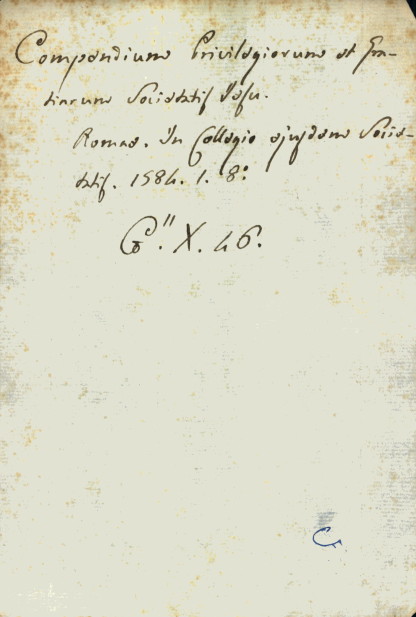 Compendium Privilegiorum et Gra-
tiarum Societatis Jesu.
Romae. In Collegio ejusdem Socie-
tatis. 1584. 1. 8º
X. 46.
C